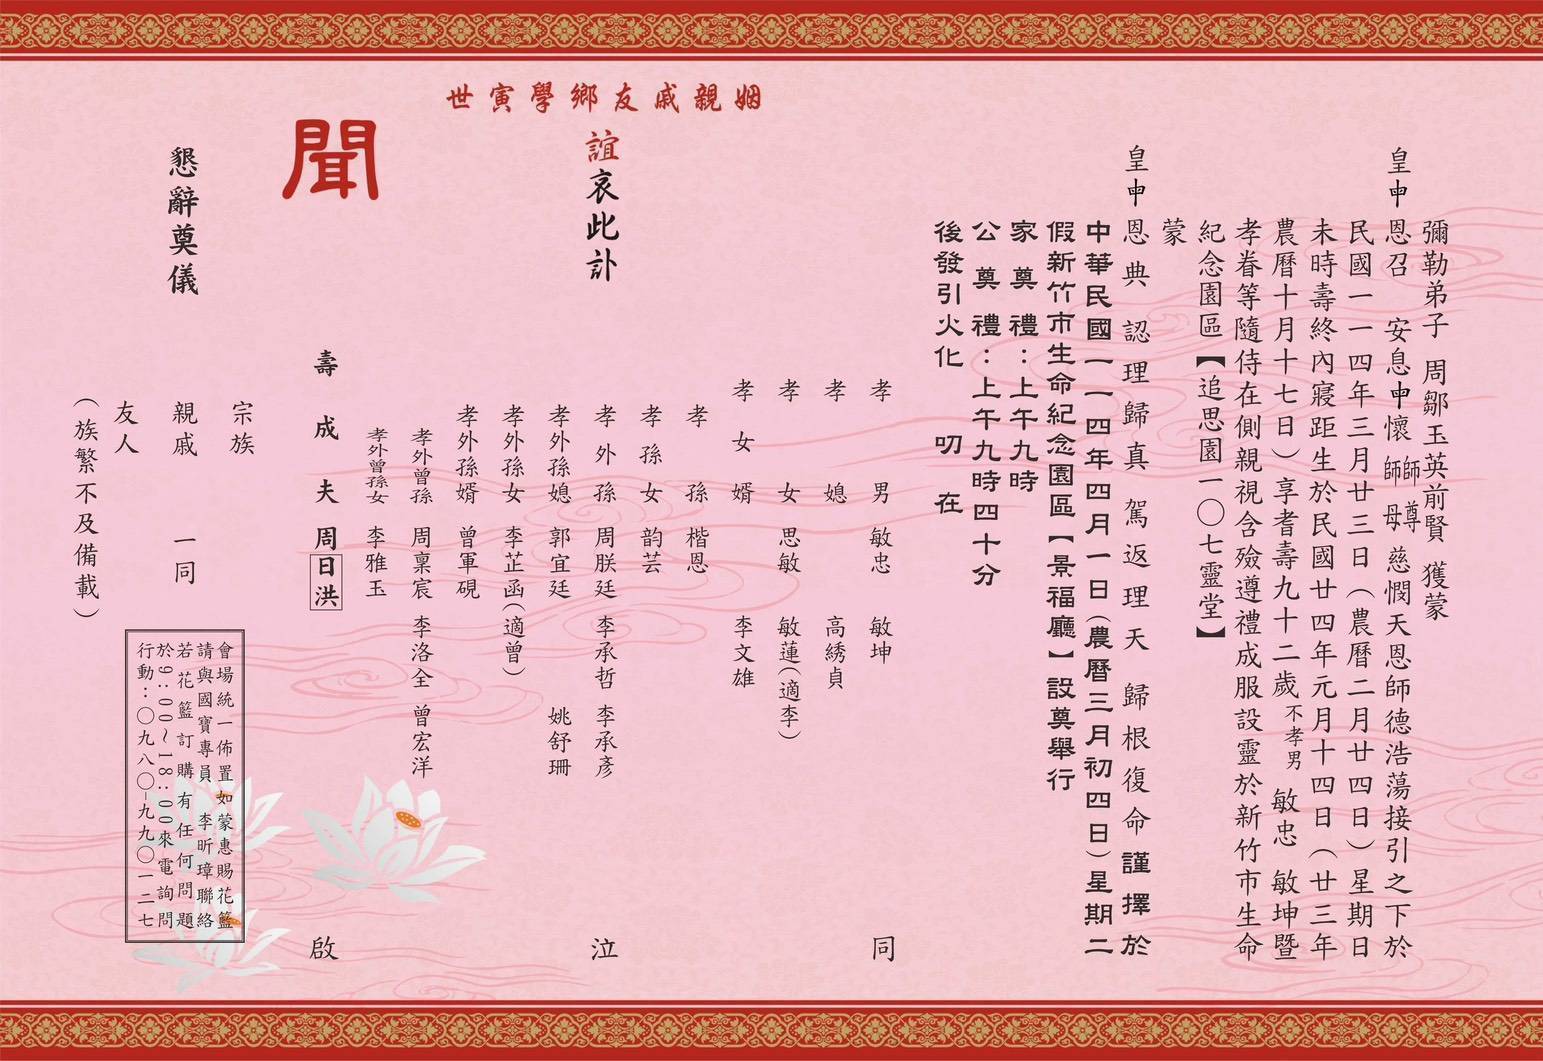 彌勒弟子 周鄒玉英前賢 獲蒙
皇申恩召 安息申懷 師尊師母 慈憫天恩師德浩蕩接引之下於
民國一一四年三月廿三日(農曆二月廿四日)星期日
未時壽終內寢距生於民國廿四年元月十四日(廿三年
農曆十月十七日)享耆壽九十二歲不孝男 敏忠 敏坤暨
孝眷等隨侍在側親視含殮遵禮成服設靈於新竹市生命
紀念園區【追思園一〇七靈堂】
蒙
皇申恩典 認理歸真 駕返理天 歸根復命謹擇於
中華民國一一四年四月一日(農曆三月初四日)星期二
假新竹市生命紀念園區【景福廳】設奠舉行
家奠禮:上午九時
公奠禮:上午九時四十分
後發引火化 叨在
姻親戚友鄉學寅世
誼哀此訃
聞
孝男 敏忠 敏坤 同
孝媳 高綉貞
孝女 思敏 敏蓮(適李)
孝女婿 李文雄
孝孫 楷恩
孝孫女 韵芸
孝外孫 周朕廷 李承哲 李承彥 泣
孝外孫媳 郭宜廷 姚舒珊
孝外孫女 李芷函(適曾)
孝外孫婿 曾軍硯
孝外曾孫 周稟宸 李洛全 曾宏洋
孝外曾孫女 李雅玉
壽成夫周日洪 啟
宗族
親戚 一同
友人
(族繁不及備載)
懇辭奠儀
會場統一佈置如蒙惠賜花籃
請與國寶專員 李昕璋聯絡
若花籃訂購有任何問題
於9:00~18:00來電詢問
行動:〇九八〇-九九〇一二七